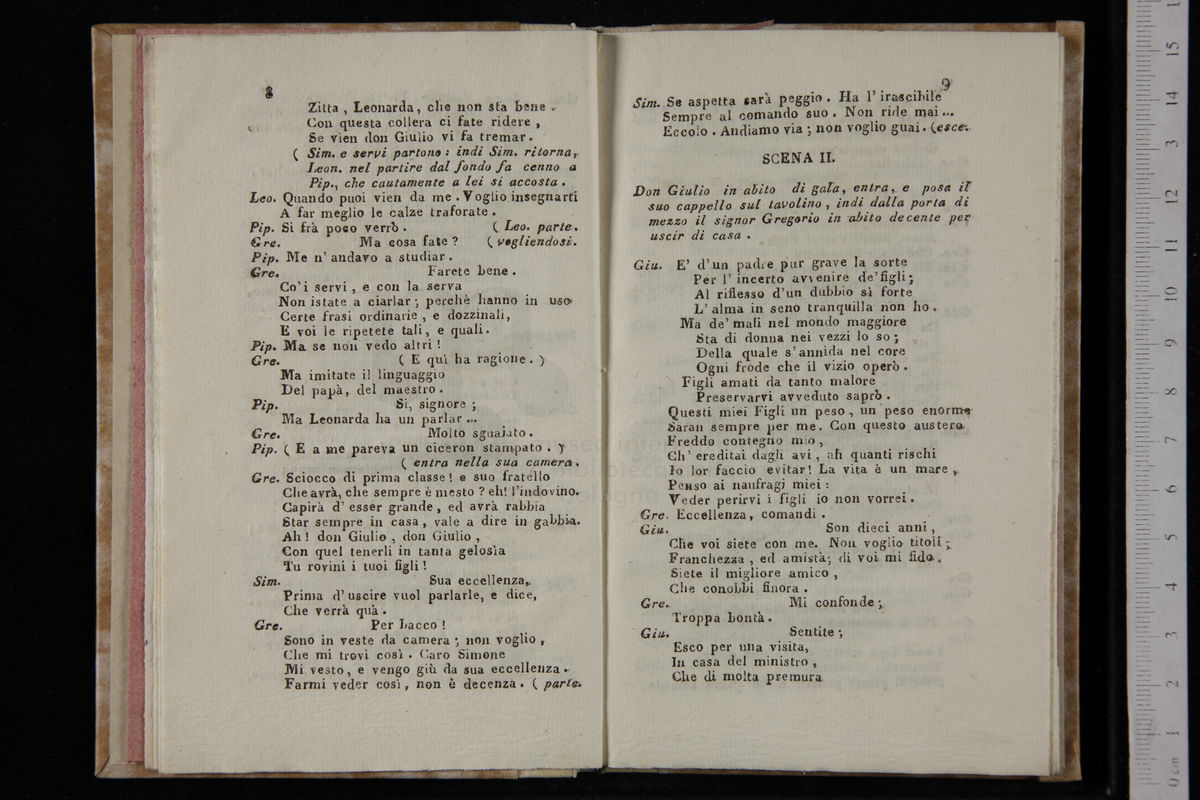 8
Zitta , Leonarda, che non sta bene .
Con questa collera ci fate ridere ,
Se vien don Giulio vi fa tremar.
( Sim. e servi partono : indi Sim. ritorna,
Leon. nel partire dal fondo fa cenno a
Pip., che cautamente a lei si accosta .
Leo. Quando puoi vien da me . Voglio insegnarti
A far meglio le calze traforate .
Pip. Si frà poco verrò . ( Leo. parte.
Gre. Ma cosa fate ? ( vogliendosi.
Pip. Me n' andavo a studiar .
Gre. Farete bene .
Co'i servi , e con la serva
Non istate a ciarlar ; perchè hanno in uso
Certe frasi ordinarie , e dozzinali,
E voi le ripetete tali, e quali.
Pip. Ma se non vedo altri !
Gre. ( E quì ha ragione . )
Ma imitate il linguaggio
Del papà, del maestro .
Pip. Si, signore ;
Ma Leonarda ha un parlar ...
Gre. Molto sguajato .
Pip. ( E a me pareva un ciceron stampato . )
( entra nella sua camera .
Gre. Sciocco di prima classe ! e suo fratello
Che avrà, che sempre è mesto ? eh! l'indovino.
Capirà d' esser grande , ed avrà rabbia
Star sempre in casa , vale a dire in gabbia.
Ah ! don Giulio , don Giulio ,
Con quel tenerli in tanta gelosìa
Tu rovini i tuoi figli !
Sim. Sua eccellenza,
Prima d' uscire vuol parlarle, e dice,
Che verrà quà .
Gre. Per bacco !
Sono in veste da camera ; non voglio ,
Che mi trovi così . Caro Simone
Mi vesto , e vengo giù da sua eccellenza .
Farmi veder così, non è decenza . ( parte.
9
Sim. Se aspetta sarà peggio . Ha l' irascibile
Sempre al comando suo . Non ride mai ...
Eccolo . Andiamo via ; non voglio guai . (esce.
SCENA II.
Don Giulio in abito di gala, entra, e posa il
suo cappello sul tavolino , indi dalla porta di
mezzo il signor Gregorio in abito decente per
uscir di casa .
Giu. E' d'un padre pur grave la sorte
Per l' incerto avvenire de'figli ;
Al riflesso d'un dubbio sì forte
L' alma in seno tranquilla non ho .
Ma de' mali nel mondo maggiore
Sta di donna nei vezzi lo so ;
Della quale s' annida nel core
Ogni frode che il vizio operò .
Figli amati da tanto malore
Preservarvi avveduto saprò .
Questi miei Figli un peso , un peso enorme
Saran sempre per me. Con questo austero
Freddo contegno mio ,
Ch' ereditai dagli avi , ah quanti rischi
Io lor faccio evitar! La vita è un mare ,
Penso ai naufragj miei :
Veder perirvi i figli io non vorrei .
Gre. Eccellenza, comandi .
Giu. Son dieci anni ,
Che voi siete con me. Non voglio titoli ;
Franchezza , ed amistà; di voi mi fido .
Siete il migliore amico ,
Che conobbi finora .
Gre. Mi confonde ;
Troppa bontà .
Giu. Sentite ;
Esco per una visita,
In casa del ministro ,
Che di molta premura